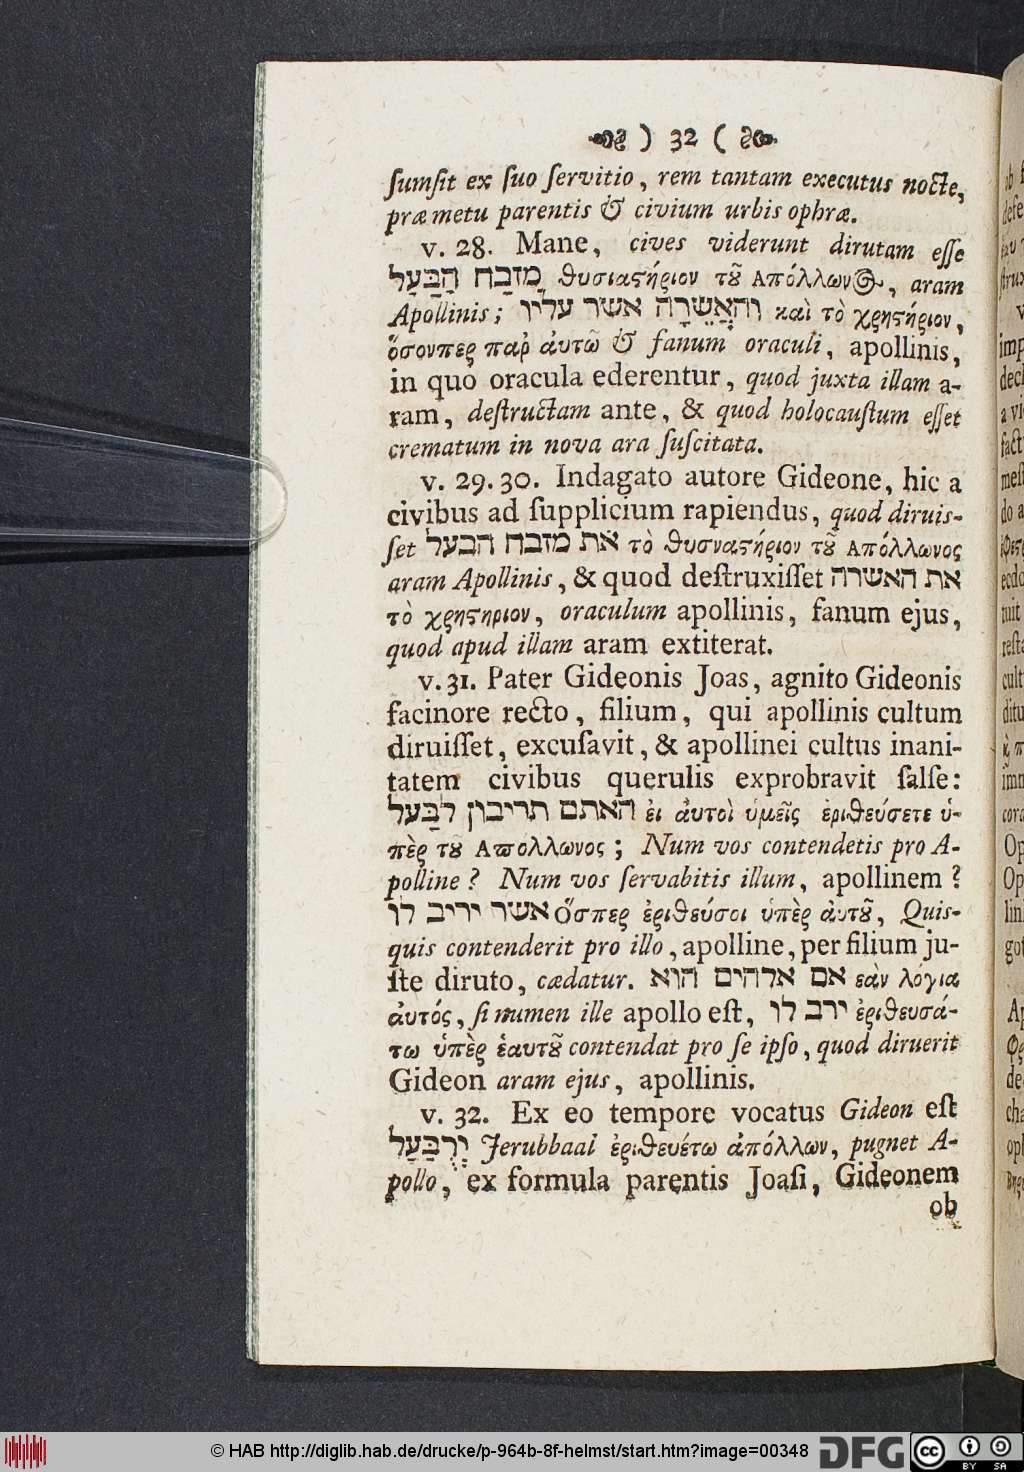 ) 32 (
ſumſit ex ſuo ſervitio, rem tantam executus nocte,
præ metu parentis & civium urbis ophræ.
v. 28. Mane, cives viderunt dirutam eſſe
מִזְבַּח הַבַּעַל θυσιαστήριον τȣ͂ Απόλλωνος, aram
Apollinis; וְהָאֲשֵׁרָה אשר עליו καὶ τὸ χρηστήριον,
ὅσονπερ παρ ἀυτῶ & fanum oraculi, apollinis,
in quo oracula ederentur, quod juxta illam a-
ram, deſtructam ante, & quod holocauſtum eſſet
crematum in nova ara ſuſcitata.
v. 29. 30. Indagato autore Gideone, hic a
civibus ad ſupplicium rapiendus, quod diruiſ-
ſet את מזבח הבעל τὸ θυσναστήριον τȣ͂ Απόλλωνος
aram Apollinis, & quod deſtruxiſſet את האשרה
τὸ χρηστηριον, oraculum apollinis, fanum ejus,
quod apud illam aram extiterat.
v. 31. Pater Gideonis Joas, agnito Gideonis
facinore recto, filium, qui apollinis cultum
diruiſſet, excuſavit, & apollinei cultus inani-
tatem civibus querulis exprobravit ſalſe:
האתם תריבון לבַּעל ἐι ἀυτοὶ ὑμεῖς ἐριθεύσετε ὑ-
πὲρ τȣ͂ Απόλλωνος; Num vos contendetis pro A-
polline? Num vos ſervabitis illum, apollinem?
אשר יריב לו Ὅσπερ ἐριθεύσοι ὑπὲρ ἀυτȣ͂, Quis-
quis contenderit pro illo, apolline, per filium ju-
ſte diruto, cædatur. אם אלהים הוא εαν λόγια
ἀυτός, ſi numen ille apollo eſt, ירב לו ἐριθευσά-
τω ὑπὲρ ἑαυτȣ͂ contendat pro ſe ipſo, quod diruerit
Gideon aram ejus, apollinis.
v. 32. Ex eo tempore vocatus Gideon eſt
יְרֻבַּעַל Jerubbaal ἐριθευέτω ἀπόλλων, pugnet A-
pollo, ex formula parentis Joaſi, Gideonem
ob
© HAB http://diglib.hab.de/drucke/p-964b-8f-helmst/start.htm?image=00348 DFG cc BY SA